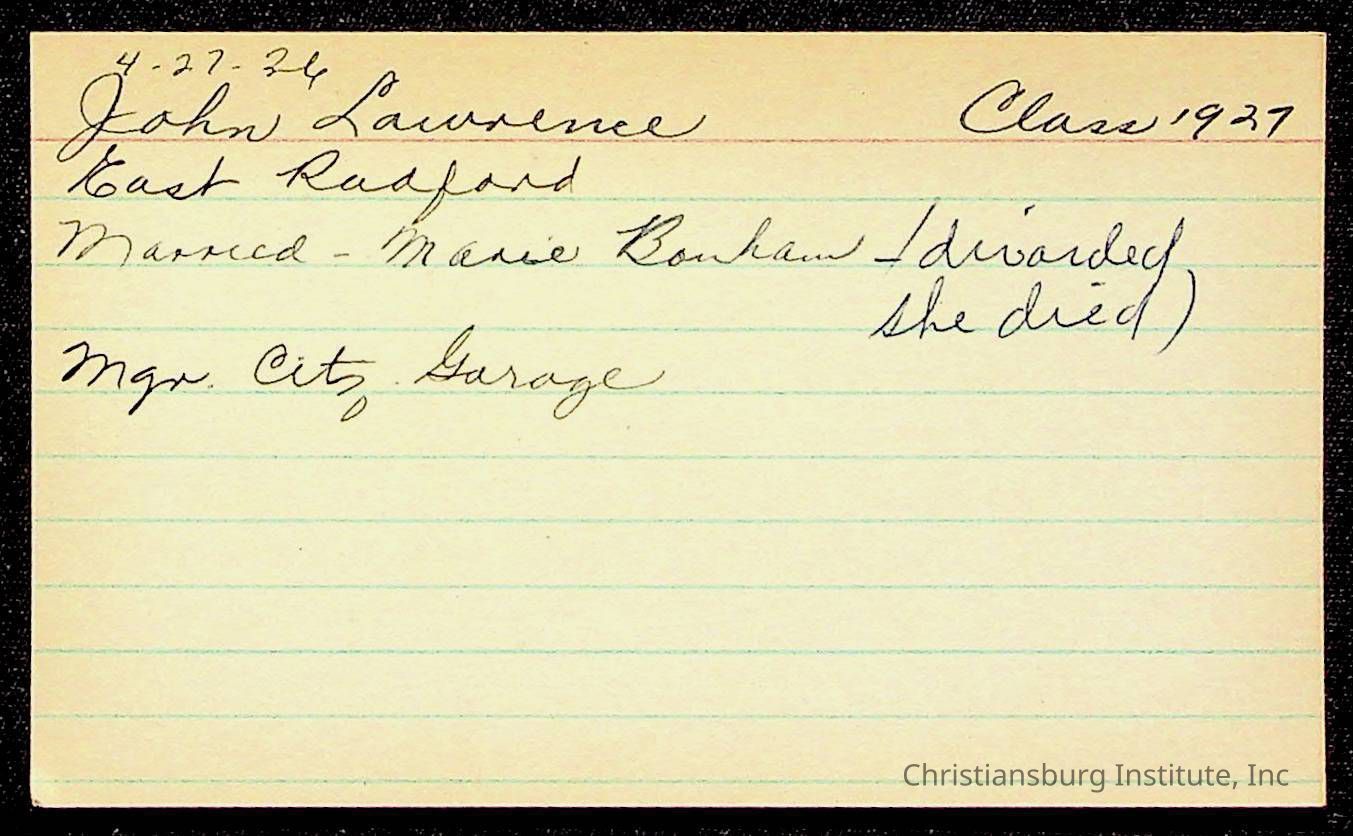 4-27-26
John Lawrence Class 1927
East Radford
Married - Marie Bonham - (divorded,
she died)
Mgr. City Garage
Christiansburg Institute, Inc